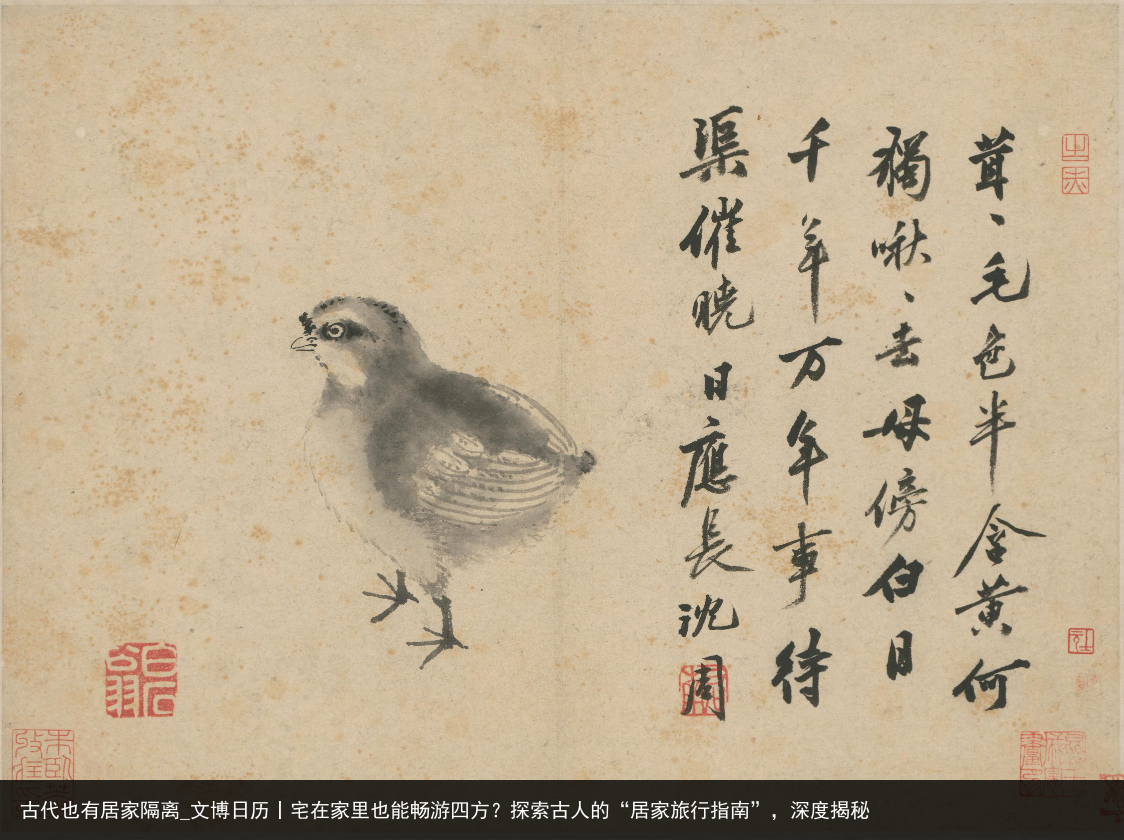 茸、毛色半含黄何
獨啾、去母傍白日
千年万年事待
渠催曉日應長沈周
古代也有居家隔离_文博日历丨宅在家里也能畅游四方？探索古人的“居家旅行指南”，深度揭秘